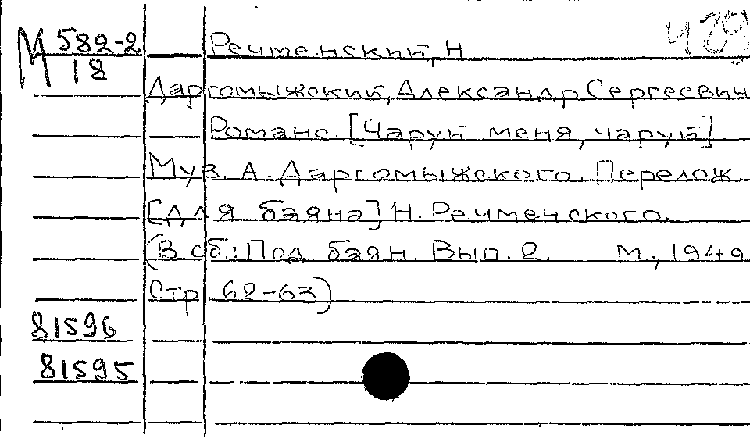 М 582-2
18
Речменский, Н
Даргомыжский, Александр Сергеевич
Романс. [Чаруй меня, чаруй].
Муз. А. Даргомыжского. Перелож.
[для баяна] Н. Речменского.
(В сб.: Под баян. Вып. 2. М., 1949
Стр. 62-63)
81596
81595